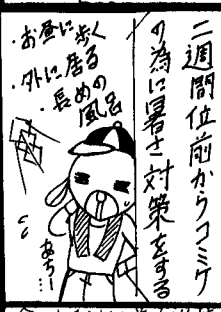 二週間位前からコミケ
の為に暑さ対策をする
・お昼に歩く
・外に居る
・長めの
風呂
あちー…